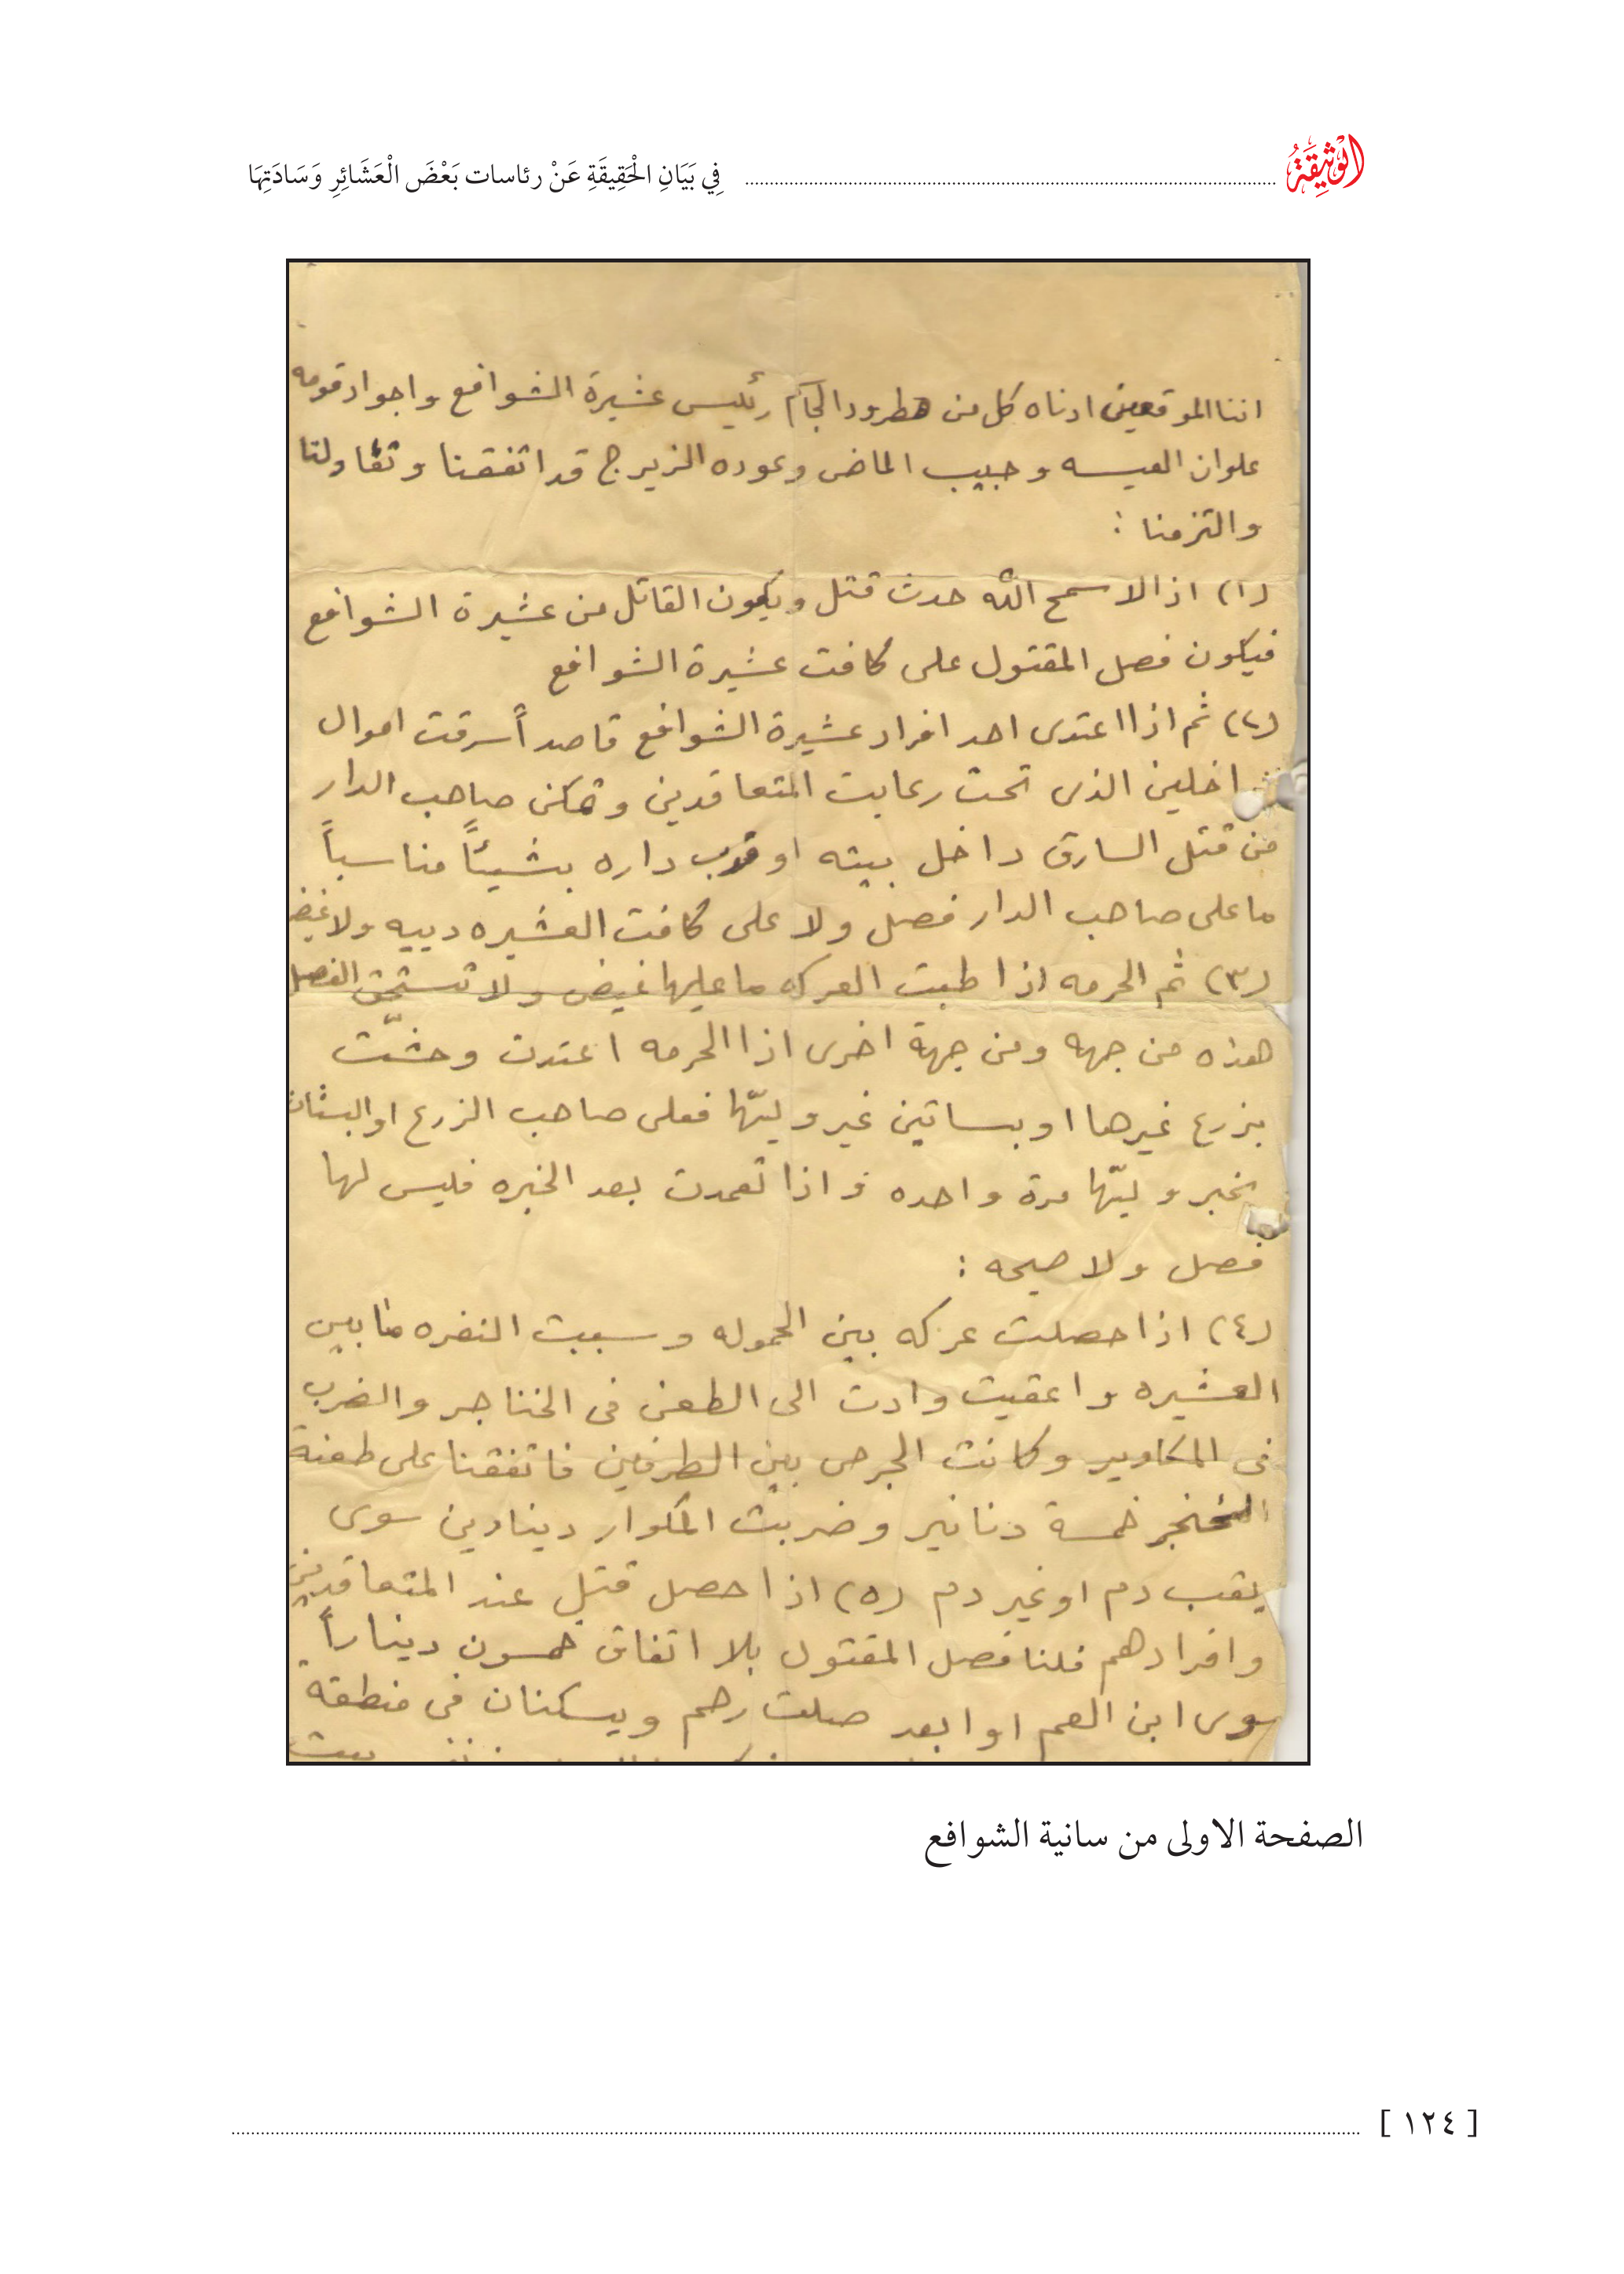 الوثيقة
في بَيَانِ الْحَقِيقَةِ عَنْ رئاسات بَعْضَ الْعَشَائِرِ وَسَادَتِهَا
اننا الموقعين ادناه كل من مطرود الجاسم رئيس عشيرة الشوافع واجواد قومه
علوان العيسه وحبيب الماضي وعوده الزيرج قد اتفقنا وتقاولنا
والتزمنا :
(١) اذا لا سمح الله حدث قتل ويكون القاتل من عشيرة الشوافع
فيكون فصل المقتول على كافت عشيرة الشوافع
(٢) ثم اذا اعتدى احد افراد عشيرة الشوافع قاصداً سرقت اموال
اخلين الذى تحت رعايت المتعاقدين وتمكن صاحب الدار
من قتل السارق داخل بيته او قرب داره بشيئاً مناسباً
ما على صاحب الدار فصل ولا على كافت العشيره دييه ولا غيض
(٣) ثم الحرمه اذا طبت العركه ما عليها غيض ولا تستحق الفصل
هذه من جهه ومن جهة اخرى اذا الحرمه اعتدت وحشّت
بزرع غيرها او بساتين غير وليّها فعلى صاحب الزرع او البستان
يخبر وليّها مرة واحده واذا تعمدت بعد الخبره فليس لها
فصل ولا صيحه :
(٤) اذا حصلت عركه بين الحموله وسببت النفره ما بين
العشيره واعقبت وادت الى الطعن فى الخناجر والضرب
فى المكاوير وكانت الجرحى بين الطرفين فاتفقنا على طعنة
الخنجر خمسة دنانير وضربت المكوار دينارين سوى
يقب دم او غير دم (٥) اذا حصل قتل عند المتعاقدين
وافرادهم فلنا فصل المقتول بلا اتفاق خمسون ديناراً
سوى ابن العم او ابعد صلت رحم ويسكنان فى منطقة
الصفحة الاولى من سانية الشوافع
[ ١٢٤ ]